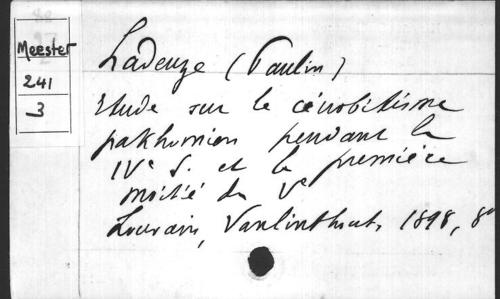 Meester
241
3
Ladeuze (Paulin)
Etude sur le cénobitisme
pakhomien pendant le
IVe S. et la première
moitié du Ve
Louvain, Vanlinthout, 1898, 8°